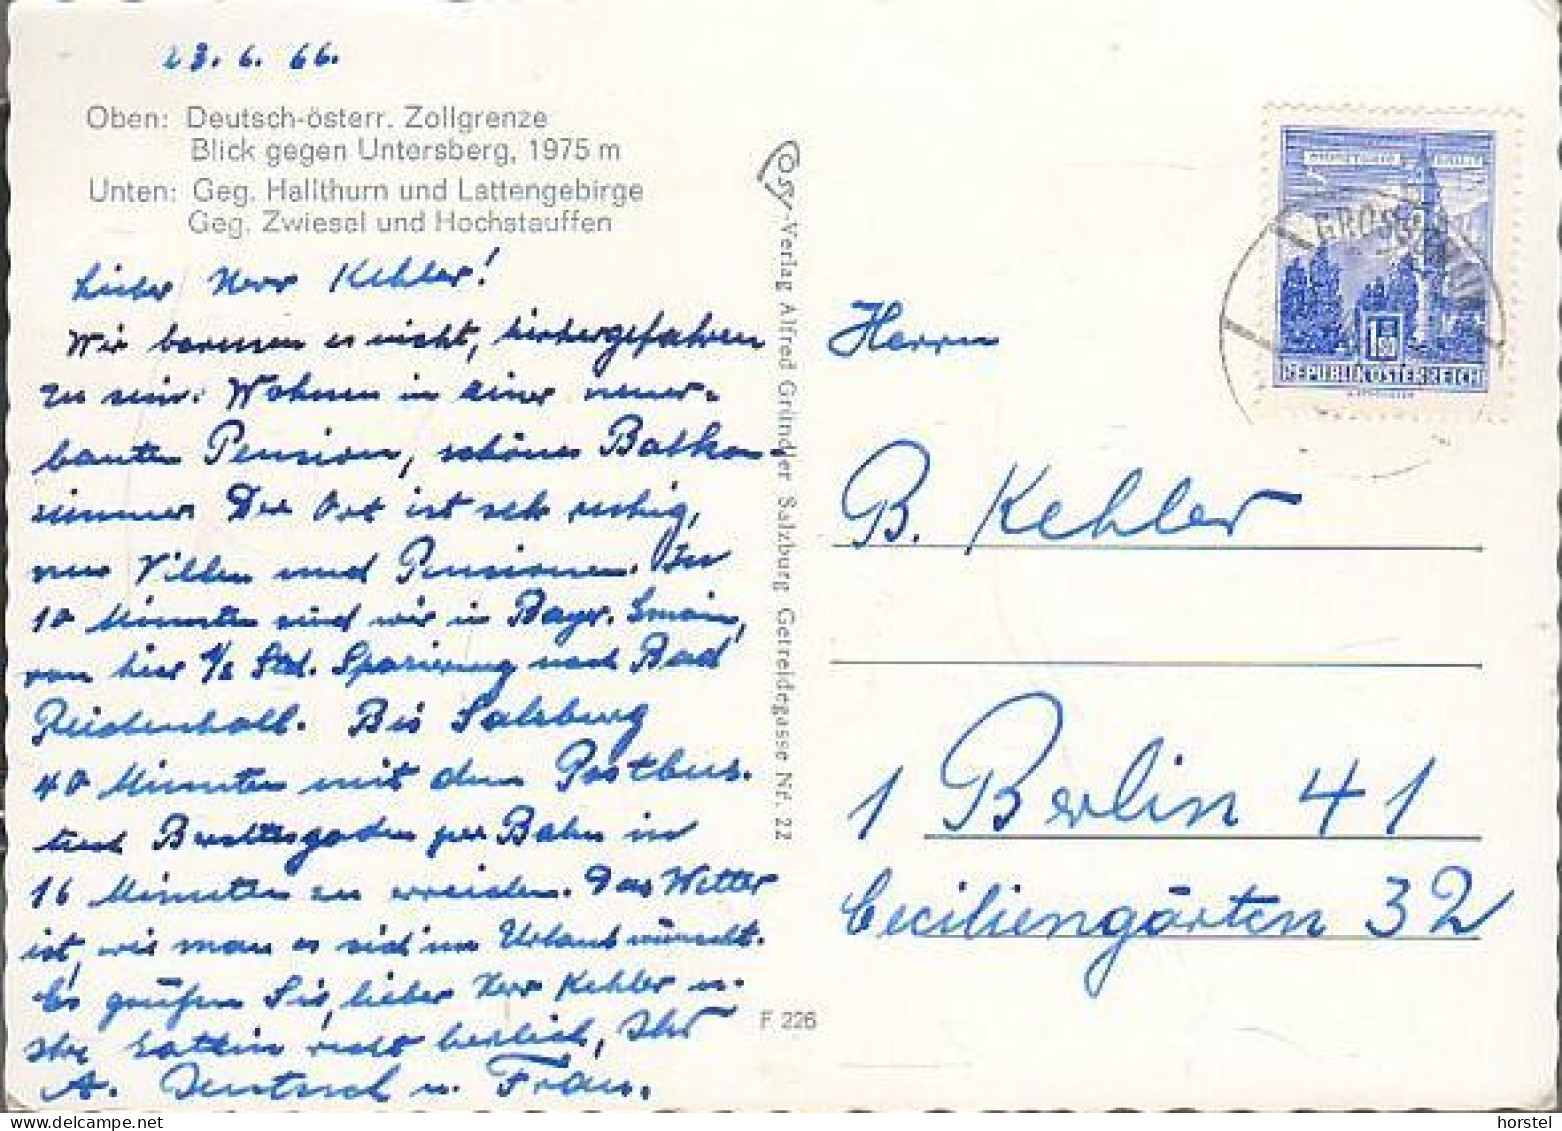 23. 6. 66.
Oben: Deutsch-österr. Zollgrenze
Blick gegen Untersberg, 1975 m
Unten: Geg. Hallthurn und Lattengebirge
Geg. Zwiesel und Hochstauffen
Lieber Herr Kehler!
Wir bereuen es nicht, hierhergefahren
zu sein. Wohnen in einer neuer-
bauten Pension, schönes Balkon-
zimmer. Der Ort ist sehr ruhig,
nur Villen und Pensionen. In
10 Minuten sind wir in Bayr. Gmain,
von hier 1/2 Std. Spazierweg nach Bad
Reichenhall. Bis Salzburg
40 Minuten mit dem Postbus.
und Berchtesgaden per Bahn in
16 Minuten zu erreichen. Das Wetter
ist, wie man es sich im Urlaub wünscht.
Es grüßen Sie, lieber Herr Kehler u.
Ihre Gattin recht herzlich, Ihr
A. u. Frau.
Cosy-Verlag Alfred Gründler Salzburg Getreidegasse Nr. 22
F 226
GROSSGMAIN
1.80
REPUBLIK ÖSTERREICH
Herrn
B. Kehler
1 Berlin 41
Ceciliengärten 32
horstel